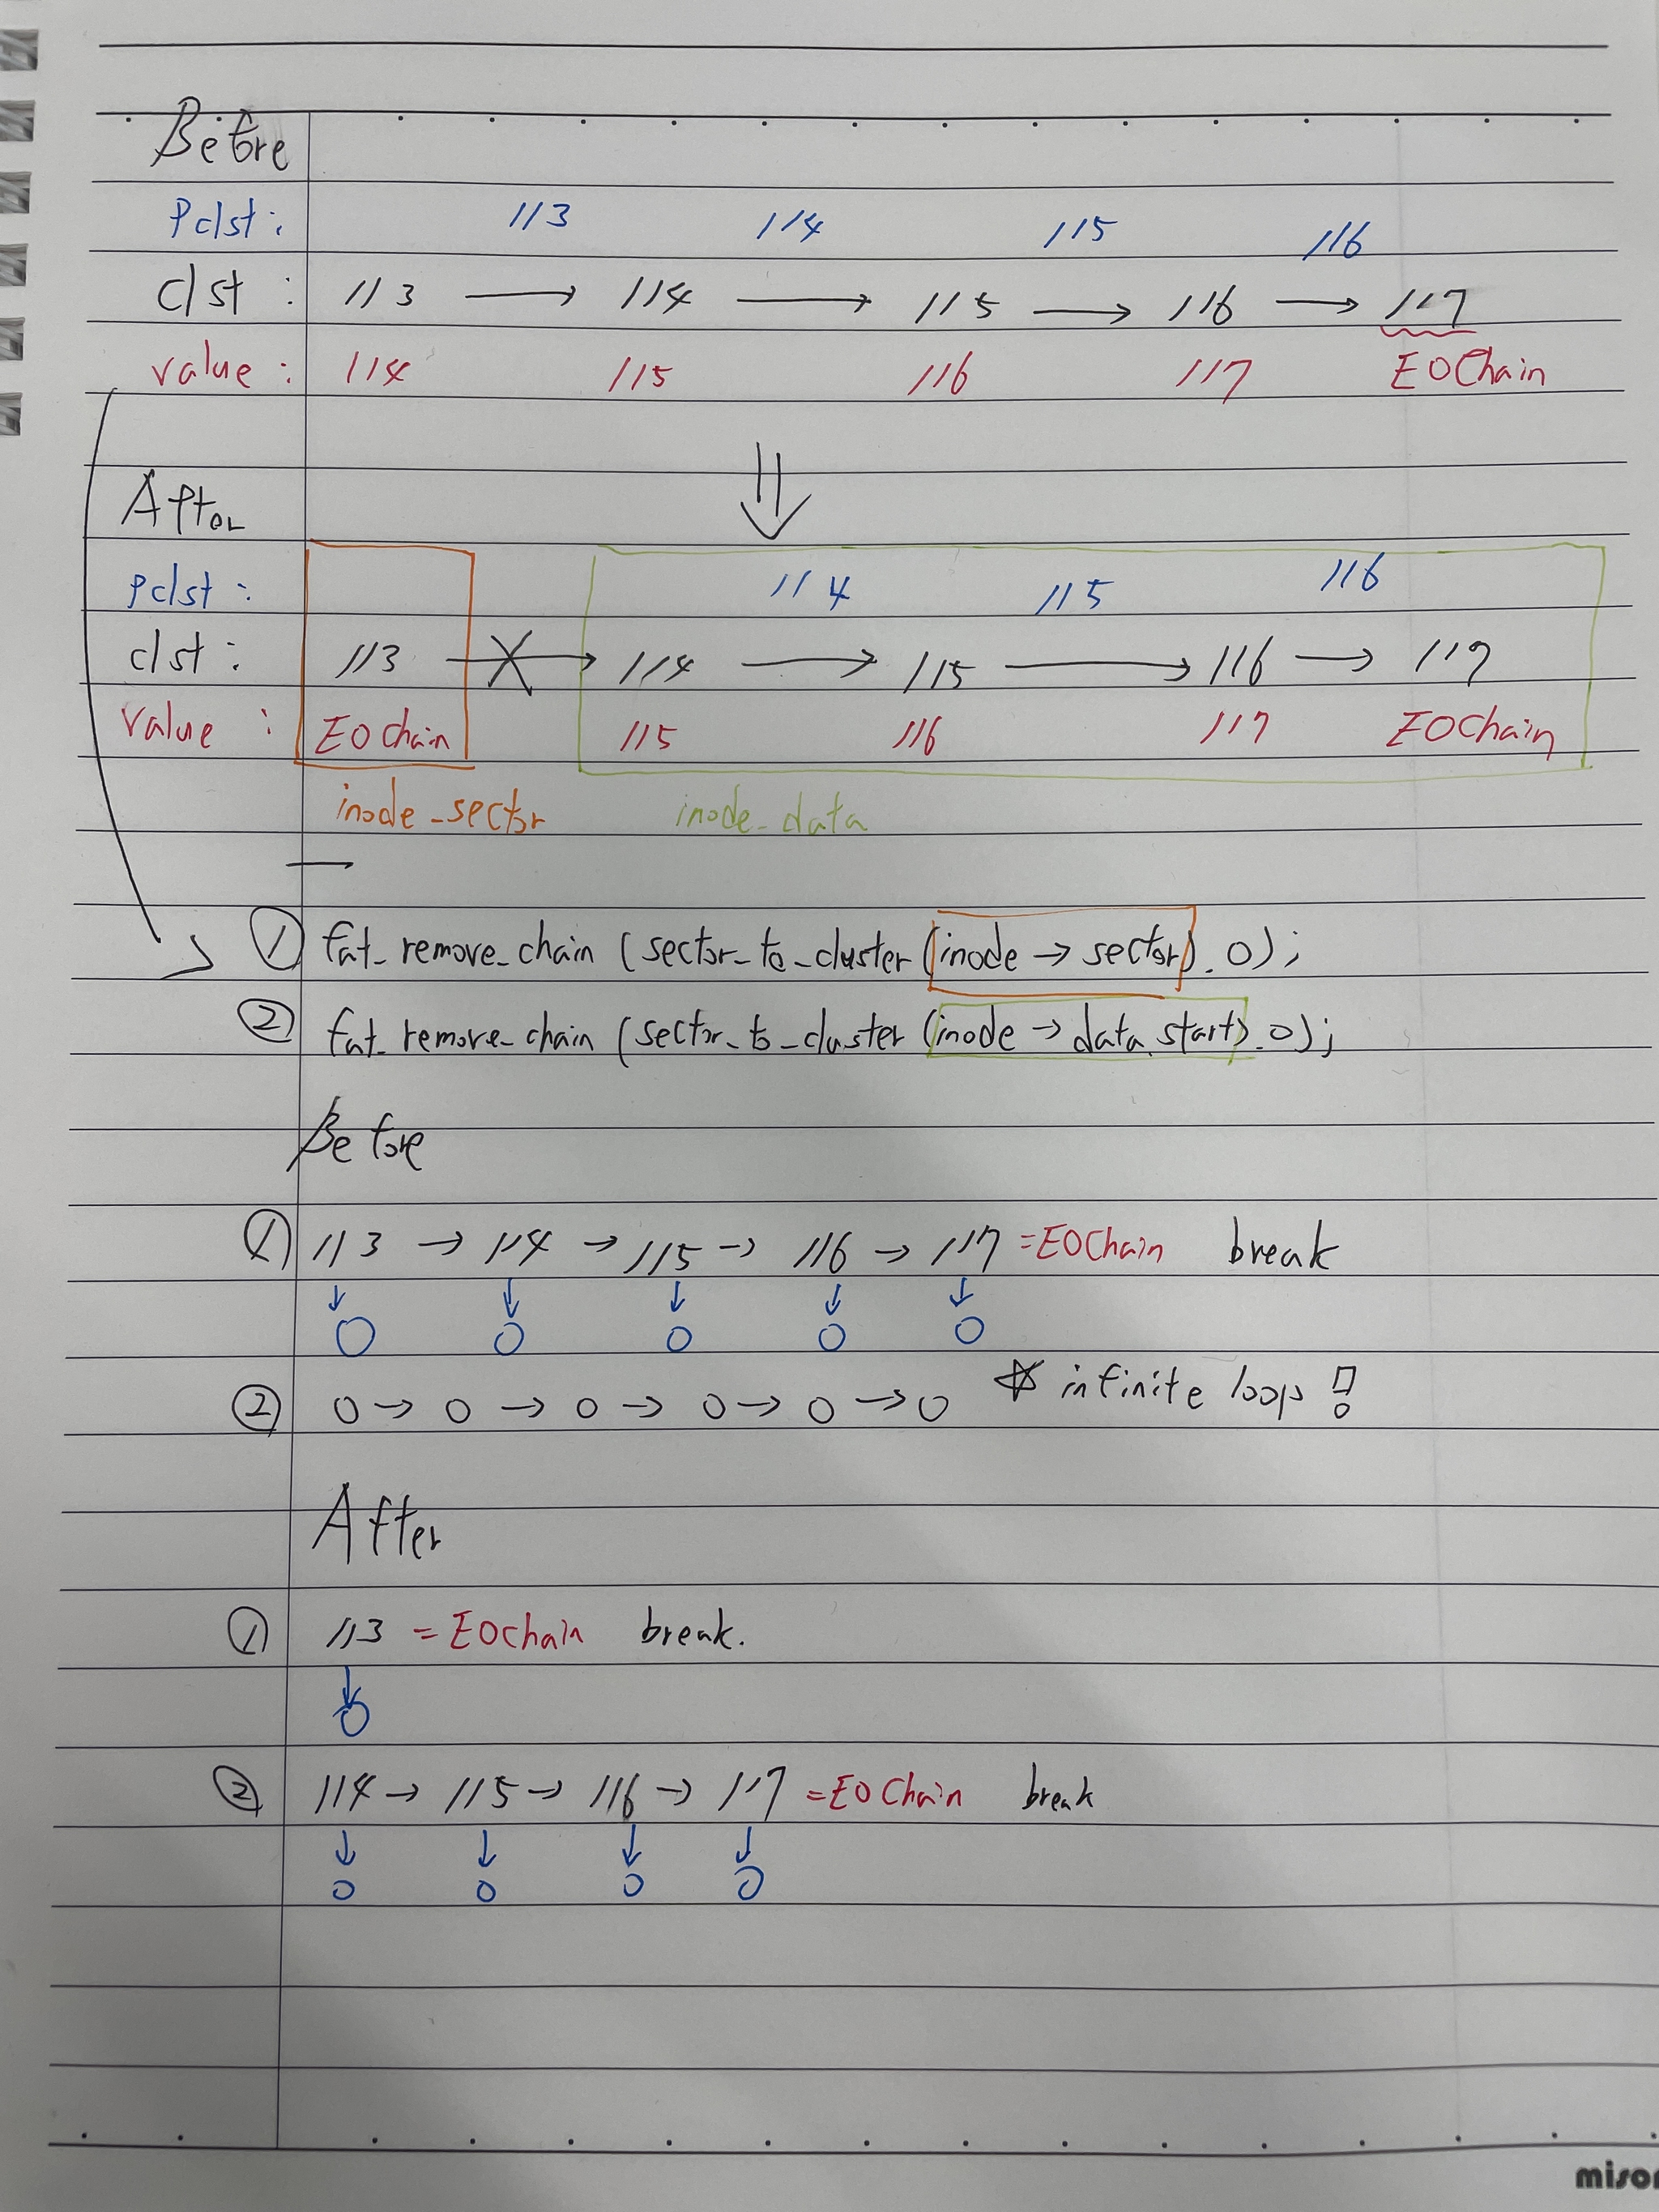 Before
Pclst: 113 114 115 116
clst: 113 → 114 → 115 → 116 → 117
value: 114 115 116 117 EOChain
After
Pclst: 114 115 116
clst: 113 → 114 → 115 → 116 → 117
value: EOChain 115 116 117 EOChain
inode_sector inode_data
① fat_remove_chain (sector_to_cluster (inode → sector), 0);
② fat_remove_chain (sector_to_cluster (inode → data.start), 0);
Before
① 113 → 114 → 115 → 116 → 117 = EOChain break
↓ ↓ ↓ ↓ ↓
0 0 0 0 0
② 0 → 0 → 0 → 0 → 0 → 0 ☆ infinite loop!
After
① 113 = EOchain break.
↓
0
② 114 → 115 → 116 → 117 = EOChain break
↓ ↓ ↓ ↓
0 0 0 0